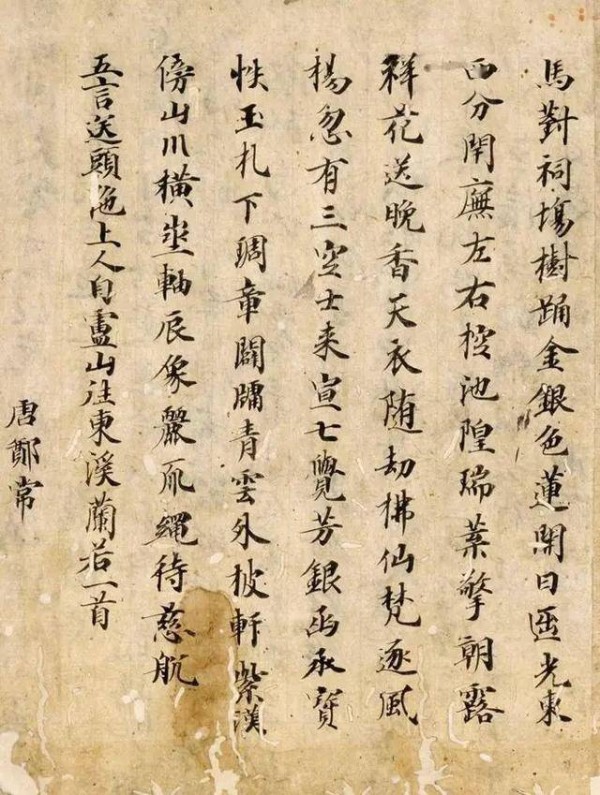 馬對祠塲樹踊金銀色蓮開日迊光東
西分閈廡左右控池隍瑞葉擎朝露
祥花送晚香天衣随劫拂仙梵逐風
楊忽有三空士来宣七覺芳銀函承寶
帙玉札下琱章闢牖青雲外披軒紫漢
傍山川橫坐軸辰象麗爪繩待慈航
五言送頭陁上人自廬山往東溪蘭若一首
唐鄭常